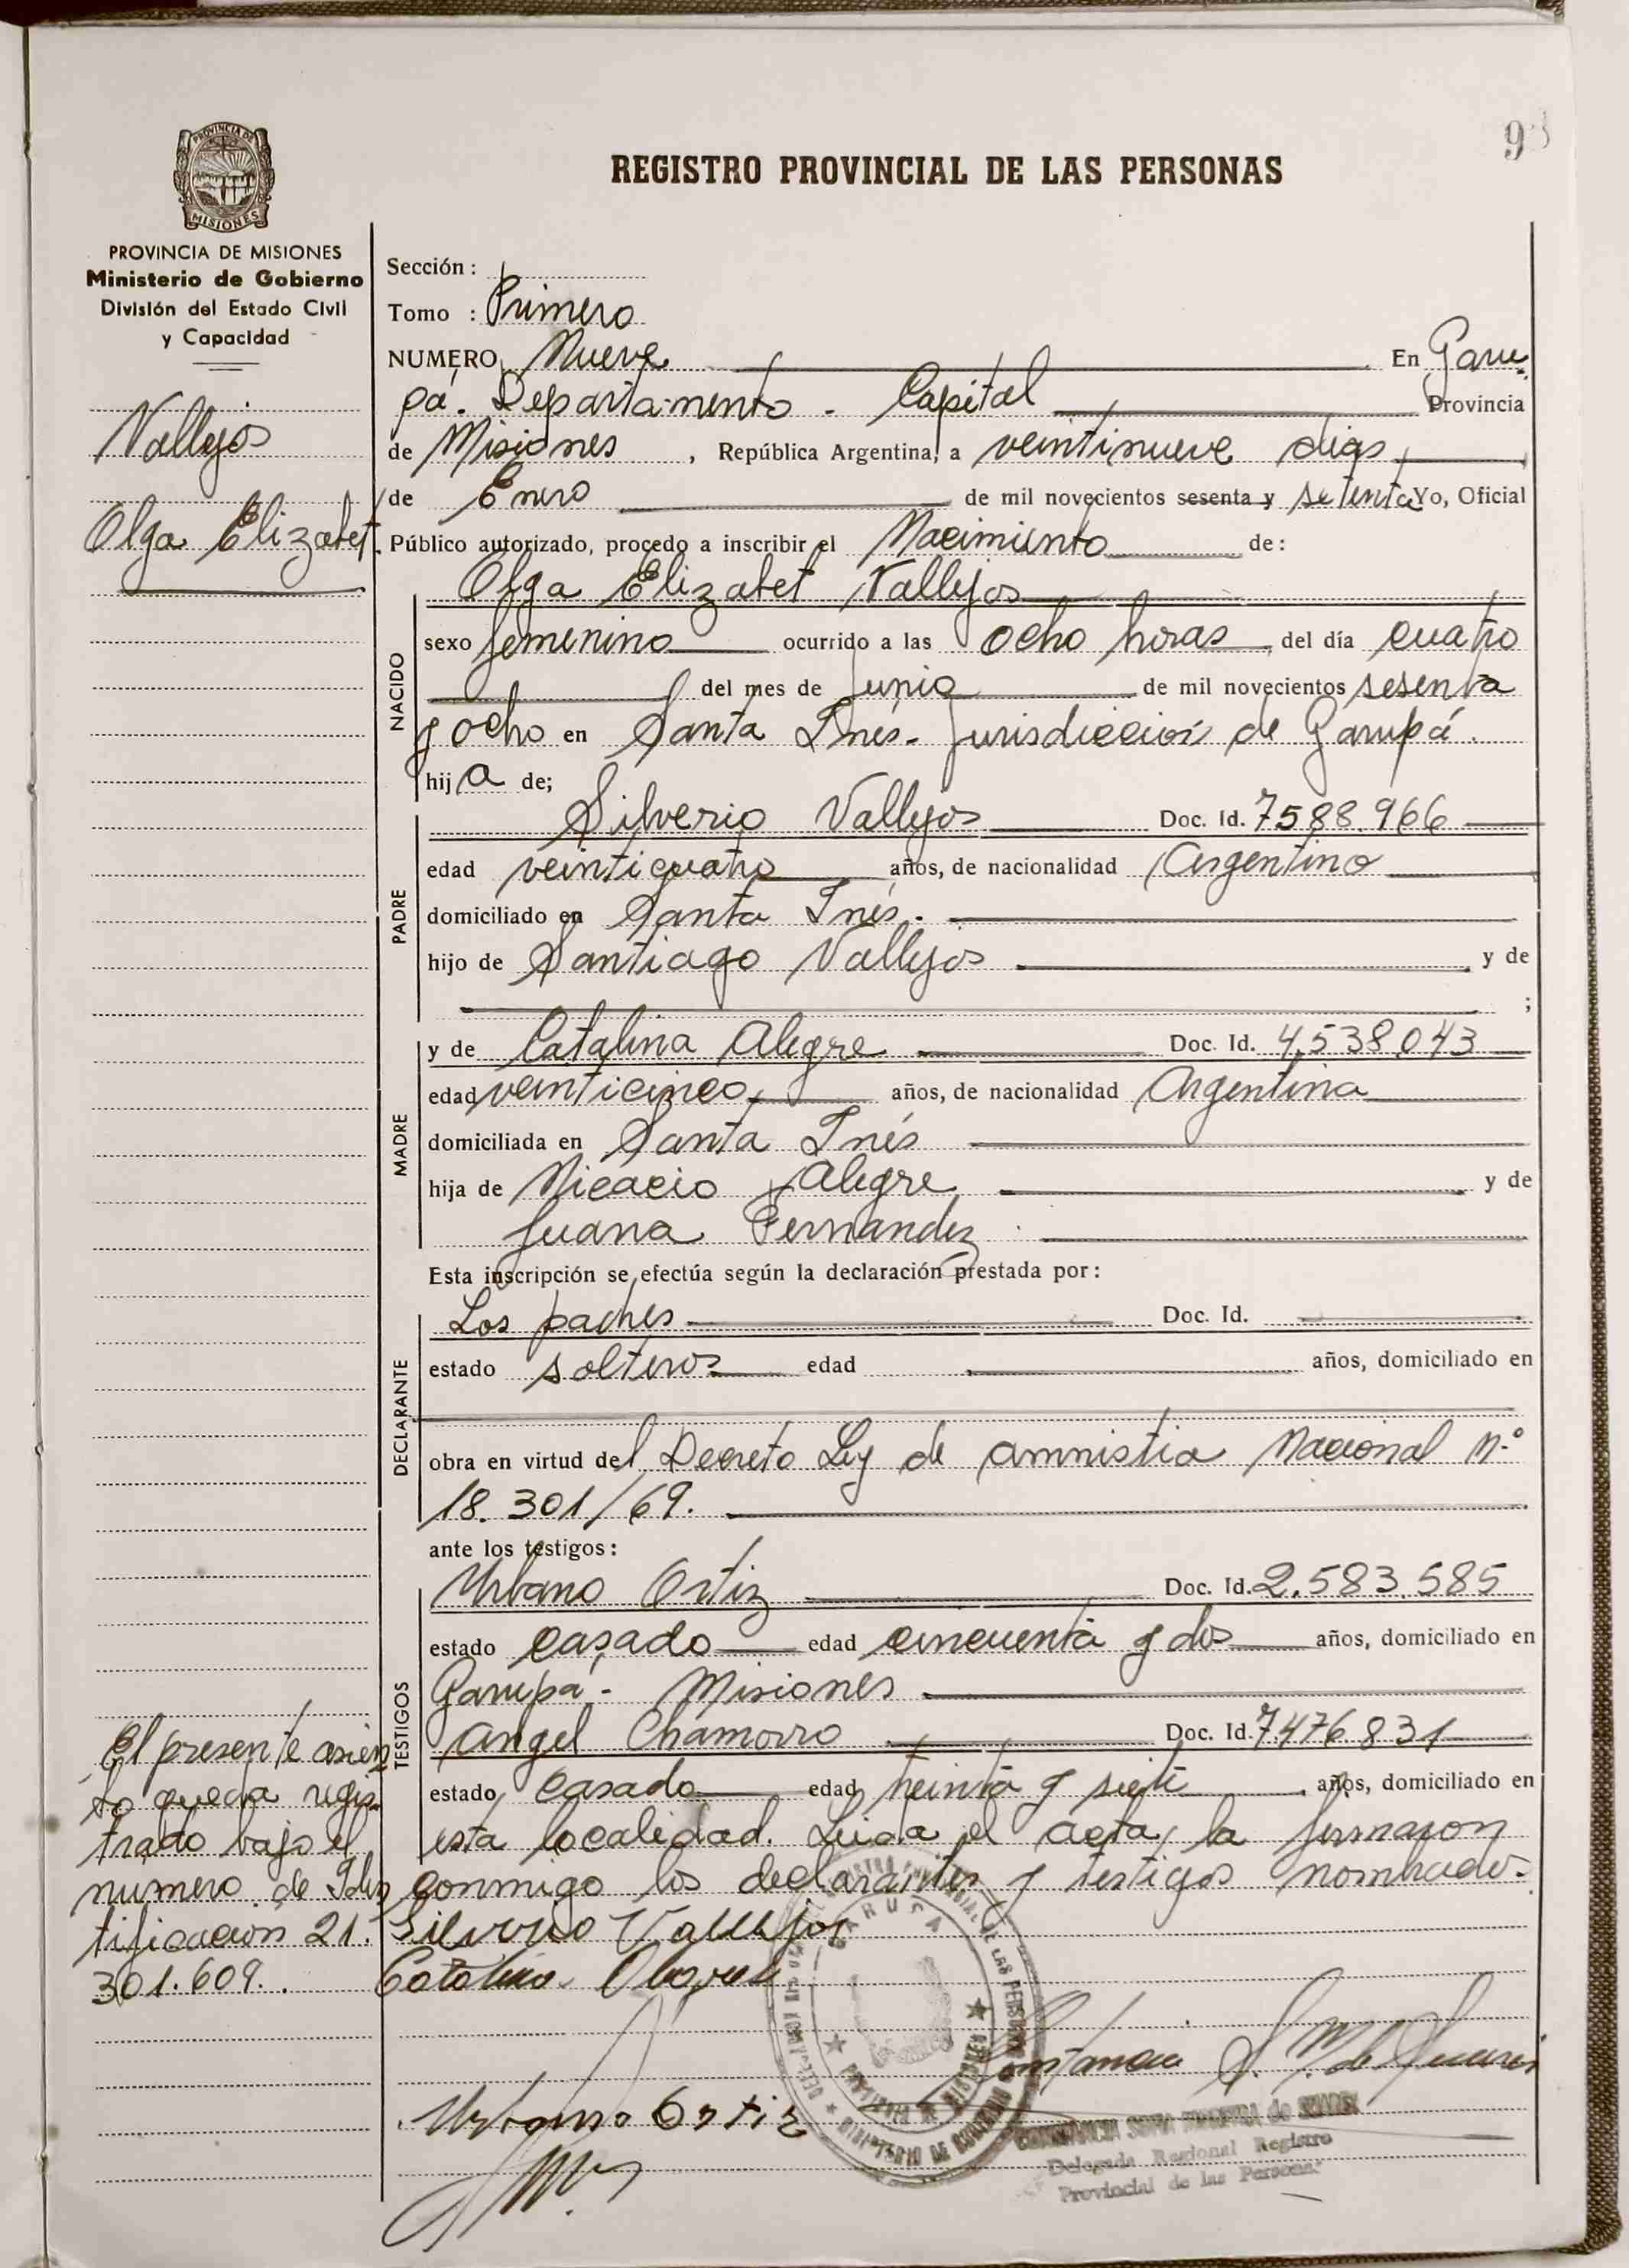 93
PROVINCIA DE
MISIONES
REGISTRO PROVINCIAL DE LAS PERSONAS
PROVINCIA DE MISIONES
Ministerio de Gobierno
División del Estado Civil
y Capacidad
Vallejos
Olga Elizabet.
Sección :
Tomo : Primero
NUMERO Nueve En Garu-
pá. Departamento - Capital Provincia
de Misiones , República Argentina, a veintinueve dias
de Enero de mil novecientos sesenta y setenta Yo, Oficial
Público autorizado, procedo a inscribir el Nacimiento de :
Olga Elizabet Vallejos
NACIDO
sexo femenino ocurrido a las ocho horas del día cuatro
del mes de Junio de mil novecientos sesenta
y ocho en Santa Inés - Jurisdicción de Garupá.
hij a de;
PADRE
Silverio Vallejos Doc. Id. 7588.966
edad veinticuatro años, de nacionalidad Argentino
domiciliado en Santa Inés.
hijo de Santiago Vallejos y de
;
MADRE
y de Catalina Alegre Doc. Id. 4.538.043
edad veinticinco años, de nacionalidad Argentina
domiciliada en Santa Inés
hija de Nicacio Alegre y de
Juana Fernandez
Esta inscripción se efectúa según la declaración prestada por :
DECLARANTE
Los padres Doc. Id.
estado solteros edad años, domiciliado en
obra en virtud del Decreto Ley de amnistia Nacional N.º
18.301/69.
ante los testigos :
TESTIGOS
Urbano Ortiz Doc. Id. 2.583.585
estado casado edad cincuenta y dos años, domiciliado en
Garupá - Misiones
Angel Chamorro Doc. Id. 7476.831
estado casado edad treinta y siete años, domiciliado en
esta localidad. Leida el acta, la firmaron
conmigo los declarantes y testigos nombrados.
El presente asien
to queda regis-
trado bajo el
numero de Iden
tificacion 21.
301.609.
Silverio Vallejos
Catalina Alegre
Constancia S. M. de
Urbano Ortiz
CONSTANCIA SOFIA de
Delegada Regional Registro
Provincial de las Personas